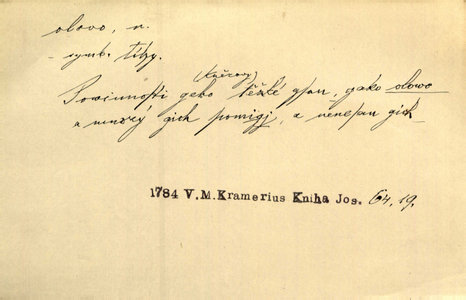 olovo, n.
- symb. tíhy.
(Kněžowy)
Powinnosti geho těžké gsau, gako olowo
a mnozý gich pomigj, a nenesau gich -
1784 V.M.Kramerius Kniha Jos. 64.19.